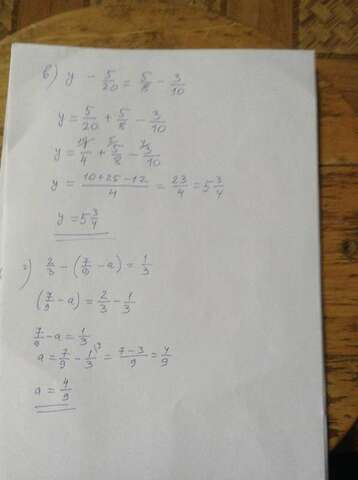 в) y - 5/20 = 5/8 - 3/10
y = 5/20 + 5/8 - 3/10
y = 1/4 + 5/8 - 3/10
y = (10+25-12)/4 = 23/4 = 5 3/4
y = 5 3/4
г) 2/3 - (7/9 - a) = 1/3
(7/9 - a) = 2/3 - 1/3
7/9 - a = 1/3
a = 7/9 - 1/3 = (7-3)/9 = 4/9
a = 4/9